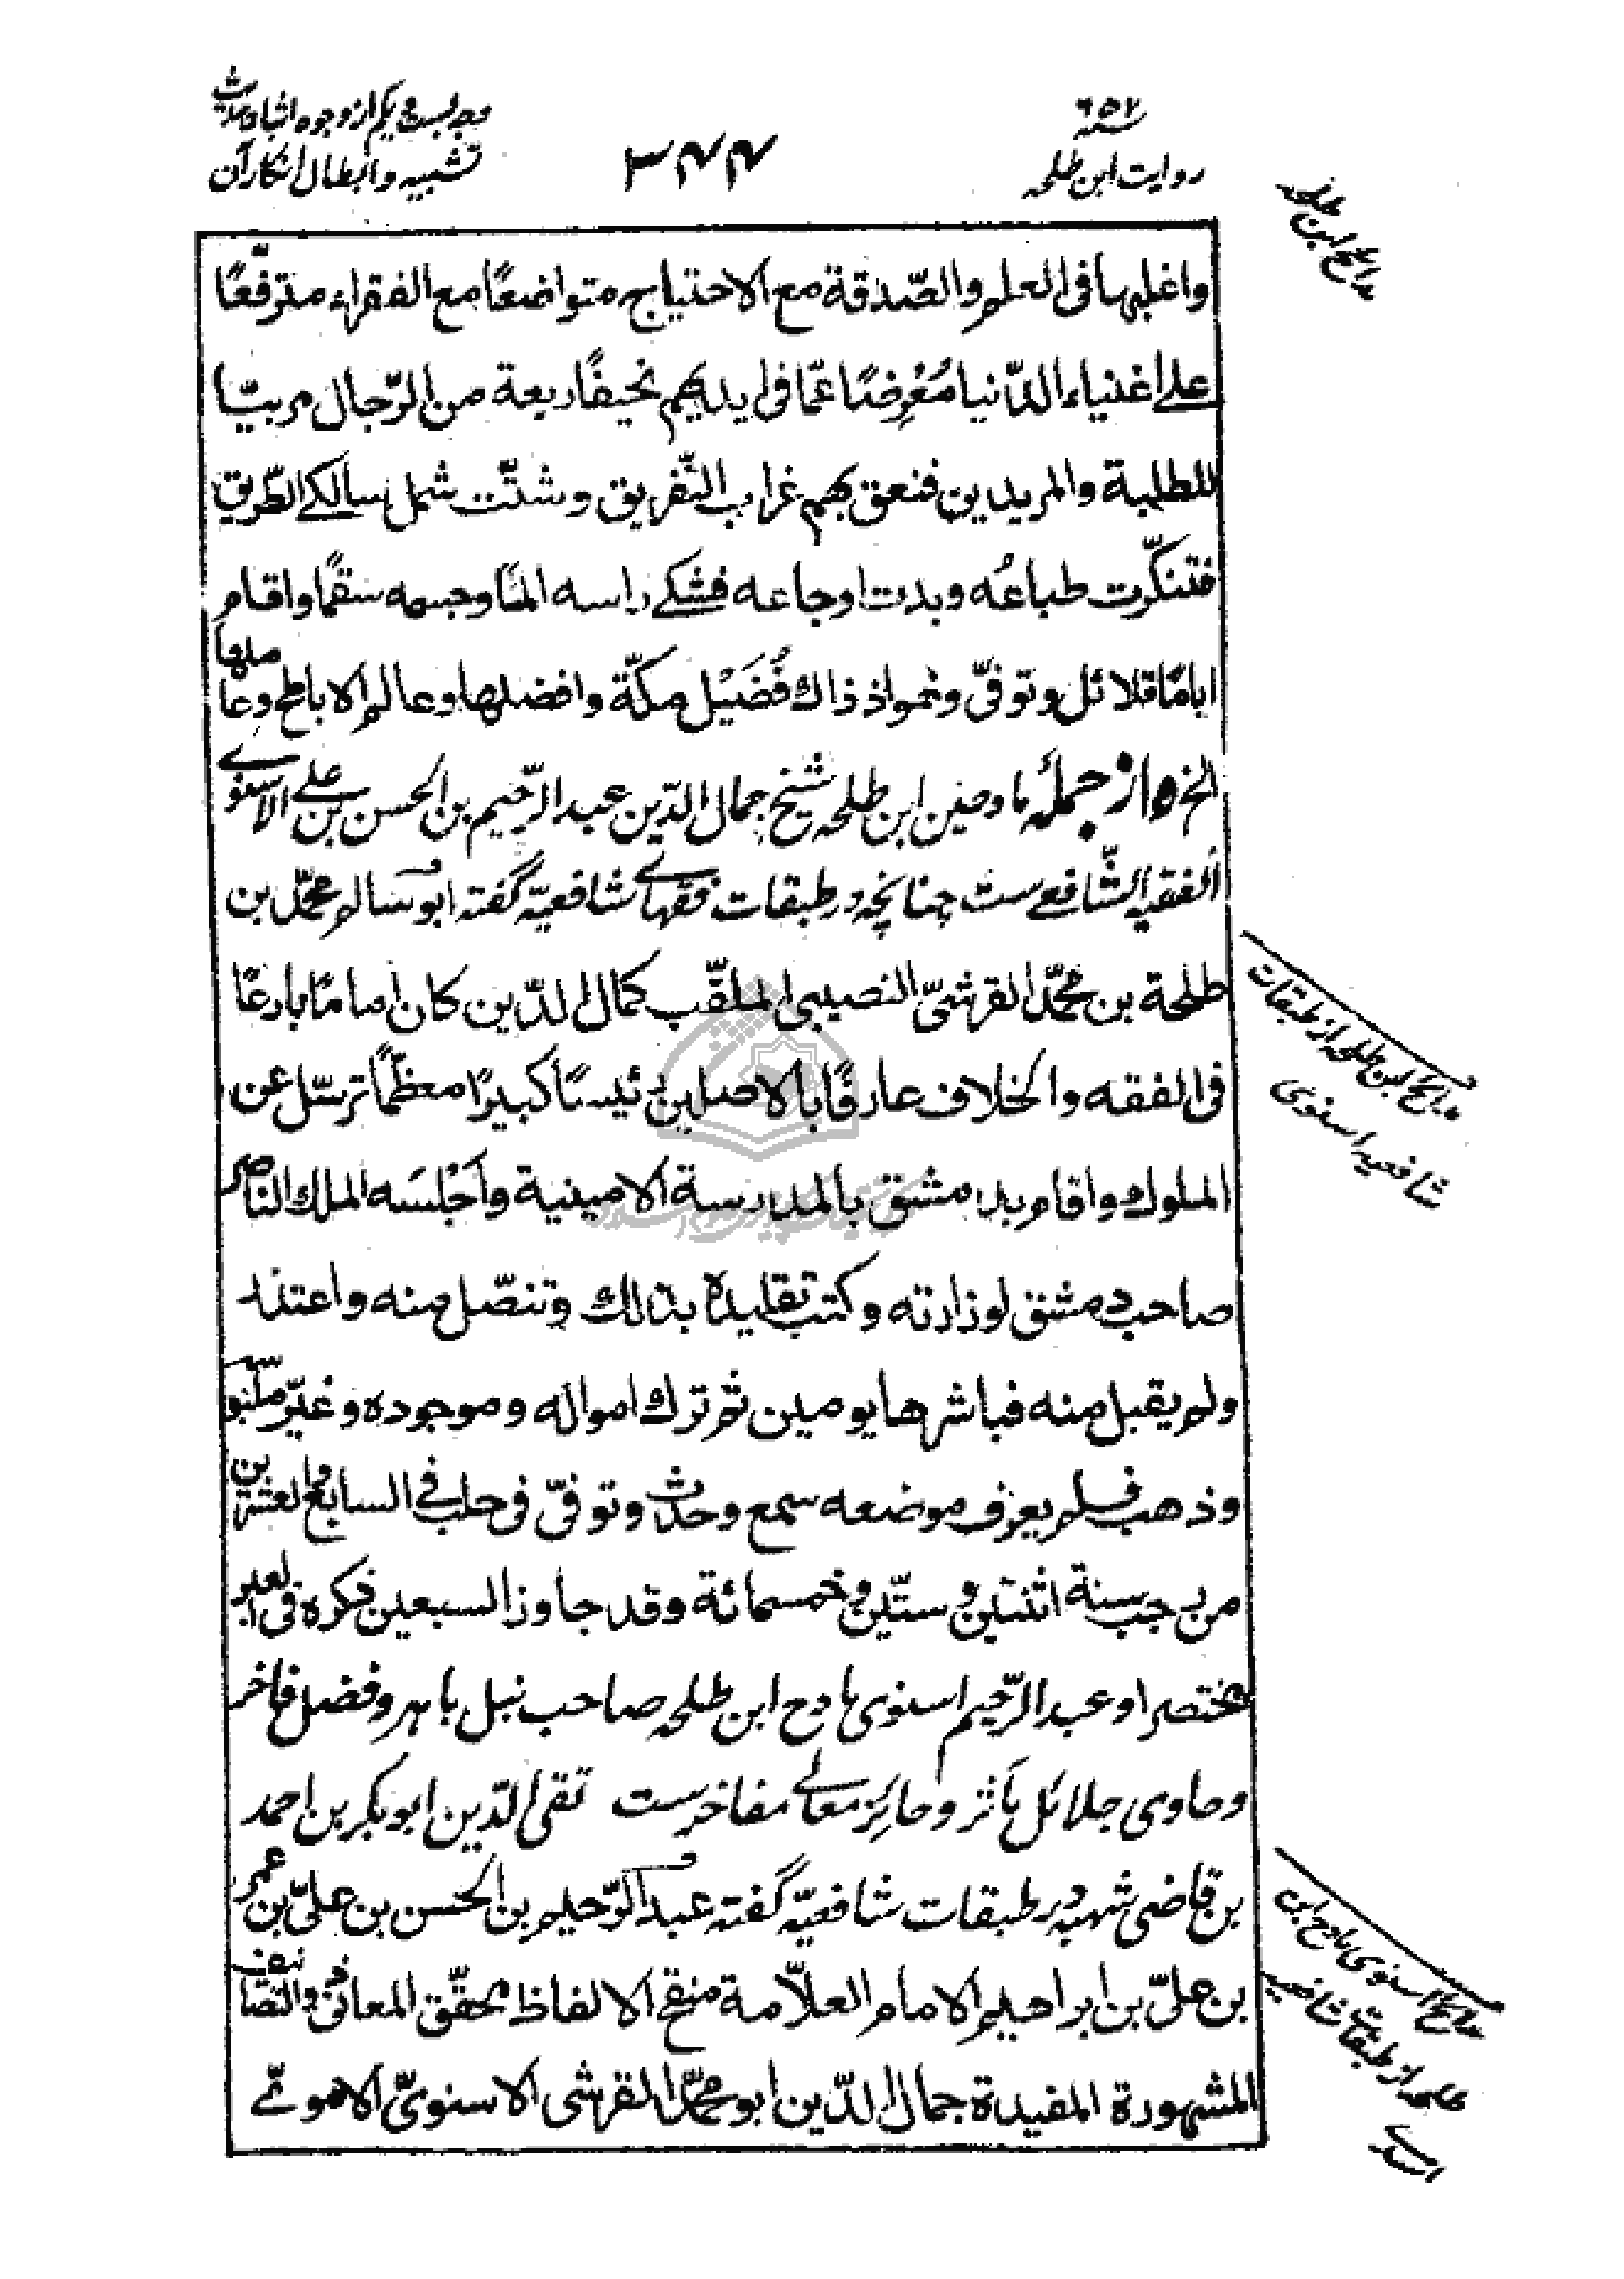 وجه بست و یکم از وجوه اثبات حدیث
تشبیه و ابطال انکار آن
۳۴۴
سنه ۶۵۲
روایت ابن طلحه
مدائح ابن طلحه
واغلبها فى العلم والصّدقة مع الاحتياج متواضعًا مع الفقراء مترفّعًا
على اغنياء الدّنيا مُعْرِضًا عمّا فى ايديهم نحيفًا ربعة من الرّجال مربيّا
للطلبة والمريدين فنعق بهم غراب التّفريق وشتّت شمل سالكى الطّريق
فتنكّرت طباعُه وبدت اوجاعه فشكى راسه المًا وجسمه سقمًا واقام
ايامًا قلائل وتوفّى ونحو اذ ذاك فُضَيْل مكّة وافضلها وعالم الاباطح وعاملها
الخ و از جملهٔ مادحین ابن طلحه شیخ جمال الدّین عبد الرّحیم بن الحسن بن علی الاسنوی
الفقیه الشّافعی ست چنانچه در طبقات فقهای شافعیّه گفته ابو سالم محمّد بن
طلحة بن محمّد القرشىّ النصيبى الملقّب كمال الدّين كان امامًا بارعًا
فى الفقه والخلاف عارفًا بالاصلين رئيسًا كبيرًا معظّمًا ترسّل عن
الملوك واقام بدمشق بالمدرسة الامينية وَاَجْلَسَه الملك الناصر
صاحب دمشق لوزارته وكتب تقليده بذلك وتنصّل منه واعتذر
ولم يقبل منه فباشرها يومين ثم ترك امواله وموجوده وغيّر ملبوسه
وذهب فلم يعرف موضعه سمع وحدث وتوفّى فى حلب فى السابع والعشرين
من رجب سنة اثنتين وستّين وخمسمائة وقد جاوز السبعين ذكره فى العبر
مختصرا و عبد الرّحیم اسنوی مادح ابن طلحه صاحب نبل باهر و فضل فاخر
و حاوی جلائل مآثر و حائز معالی مفاخرست تقی الدّین ابو بکر بن احمد
بن قاضی شهبه در طبقات شافعیّه گفته عبد الرّحيم بن الحسن بن علىّ بن عمر
بن علىّ بن ابراهيم الامام العلّامة منقح الالفاظ محقّق المعانى ذو التصانيف
المشهورة المفيدة جمال الدّين ابو محمّد القرشى الاسنوىّ الاموىّ
مدائح ابن طلحه از طبقات
شافعیه اسنوی
مدائح اسنوی مادح ابن
طلحه از طبقات شافعیه
اسدی